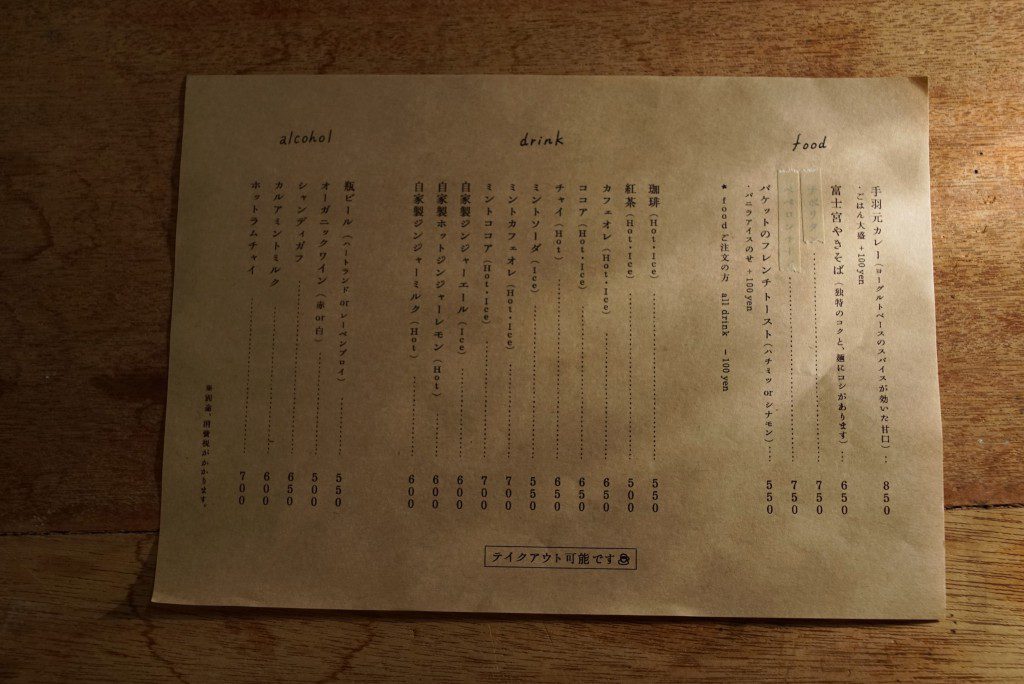 food
手羽元カレー（ヨーグルトベースのスパイスが効いた甘口）… 850
・ごはん大盛 +100yen
富士宮やきそば（独特のコクと、麺にコシがあります）… 650
ナポリタン 750
ペペロンチーノ 750
バケットのフレンチトースト（ハチミツ or シナモン）… 550
・バニラアイスのせ +100yen
★ food ご注文の方 all drink －100yen
drink
珈琲（Hot・Ice） 550
紅茶（Hot・Ice） 500
カフェオレ（Hot・Ice） 650
ココア（Hot・Ice） 650
チャイ（Hot） 650
ミントソーダ（Ice） 550
ミントカフェオレ（Hot・Ice） 700
ミントココア（Hot・Ice） 700
自家製ジンジャーエール（Ice） 600
自家製ホットジンジャーレモン（Hot） 600
自家製ジンジャーミルク（Hot） 600
alcohol
瓶ビール（ハートランド or レーベンブロイ） 550
オーガニックワイン（赤 or 白） 500
シャンディガフ 650
カルアミントミルク 600
ホットラムチャイ 700
※別途、消費税がかかります。
テイクアウト可能です